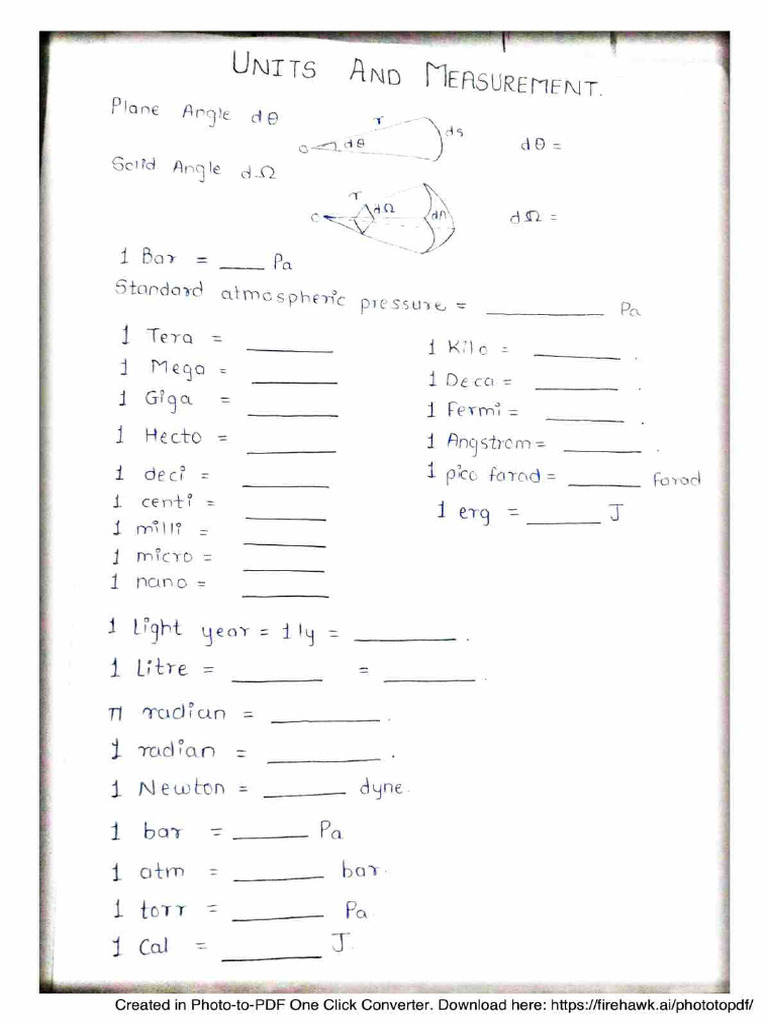 UNITS AND MEASUREMENT.
Plane Angle dθ
r
ds
O
dθ
dθ =
Solid Angle dΩ
r
dΩ
dA
O
dΩ =
1 Bar = ____ Pa
Standard atmospheric pressure = __________ Pa
1 Tera = ________
1 Kilo = ________ .
1 Mega = ________
1 Deca = ________ .
1 Giga = ________
1 Fermi = ________ .
1 Hecto = ________
1 Angstrom = ________ .
1 deci = ________
1 pico farad = ________ farad
1 centi = ________
1 erg = ________ J
1 milli = ________
1 micro = ________
1 nano = ________
1 Light year = 1 ly = __________ .
1 Litre = ________ = ________ .
π radian = __________ .
1 radian = __________ .
1 Newton = ________ dyne.
1 bar = ________ Pa
1 atm = ________ bar.
1 torr = ________ Pa.
1 Cal = __________ J.
Created in Photo-to-PDF One Click Converter. Download here: https://firehawk.ai/phototopdf/